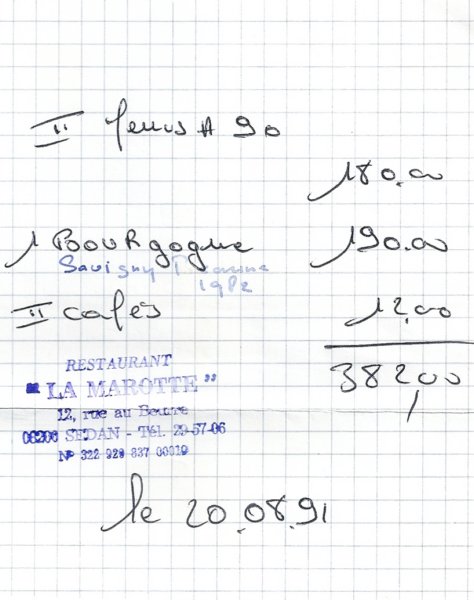 II Menus A 90
180.00
1 Bourgogne 190.00
Savigny
1982
II cafés 12,00
382,00
RESTAURANT
"LA MAROTTE"
12, rue au Beurre
08200 SEDAN - Tél. 29-57-06
N° 322 929 837 00019
le 20.08.91